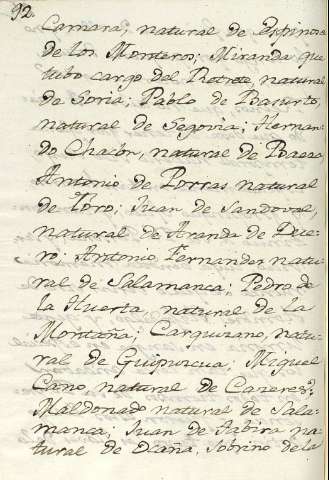 92.
Camara, natural de Espinosa
de los Monteros; Miranda que
tubo cargo del Retrete, natural
de Soria; Pablo de Basurto,
natural de Segovia; Hernan-
do Chacon, natural de Baeza
Antonio de Porras natural
de Toro; Juan de Sandoval,
natural de Aranda de Due-
ro; Antonio Fernandez natu-
ral de Salamanca; Pedro de
la Huerta natural de la
Montaña; Carquizano, natu-
ral de Guipuzcua; Miguel
Cano, natural de Cazeres;
Maldonado natural de Sala-
manca; Juan de na-
tural de Ocaña, Sobrino de la